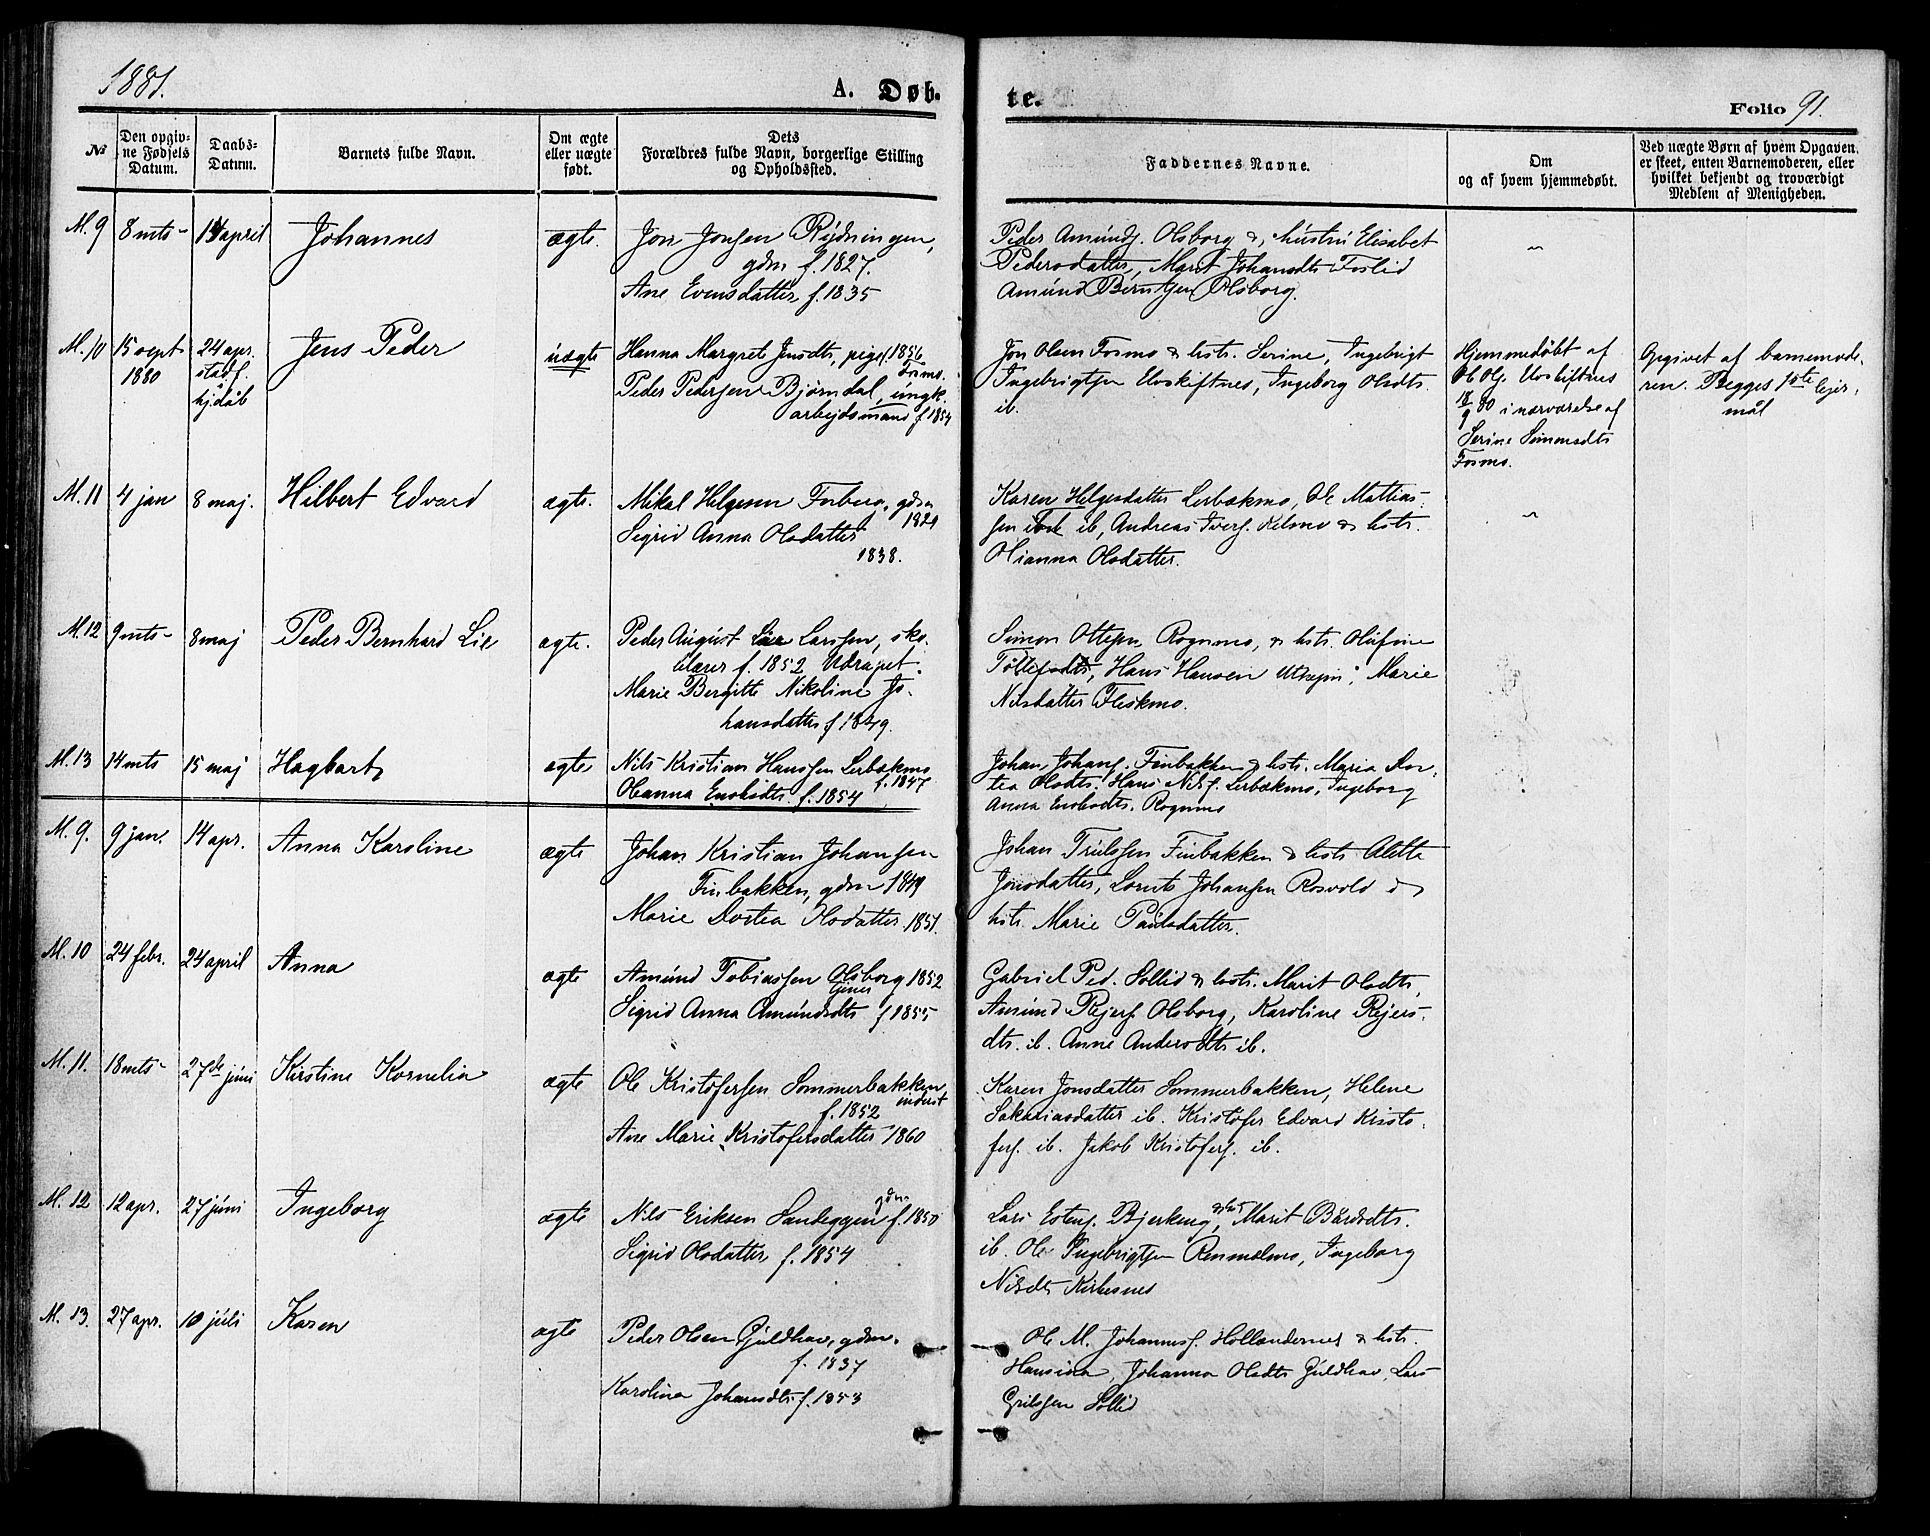 1881.
A. Døb-
te.
Folio 91.
No
Den opgiv-
ne Fødsels
Datum.
Daabs-
Datum.
Barnets fulde Navn.
Om ægte
eller uægte
født.
Dets
Forældres fulde Navn, borgerlige Stilling
og Opholdssted.
Faddernes Navne.
Om
og af hvem hjemmedøbt.
Ved uægte Børn af hvem Opgaven
er skeet, enten Barnemoderen, eller
hvilket bekjendt og troværdigt
Medlem af Menigheden.
M. 9 8 mts april Johannes ægte.
Jon Jonsen Rydningen,
gdm f. 1827.
Ane Evensdatter f. 1835
Peder Amunds. Olsborg & hustru Elisabet
Pedersdatter, Marit Johansdtr Foslid
Amund Berntsen Olsborg.
M. 10 15 sept 1880
24 apr.
stadf.
hjdåb
Jens Peder uægte
Hanna Margrete Jensdtr, pige f 1856
Fosmo.
Peder Pedersen Bjørndal, ungk.
arbejdsmand f 1854
Jon Olsen Fosmo & hstr. Serine, Ingebrigt
Ingebrigtsen Elvskiftnes, Ingeborg Olsdtr.
ib.
Hjemmedøbt af
18/9 80 i nærværelse af
Serine Simonsdtr
Fosmo.
Opgivet af barnemode-
ren. Begges 1ste lejer-
mål
M. 11 4 jan 8 maj. Hilbert Edvard ægte.
Mikal Helgesen Forberg, gdm
Sigrid Anna Olsdatter
1838.
Karen Helgesdatter Lerbækmo, Ole Mattias-
sen ib, Andreas Ivers. Kilmo & hstr.
Olianna Olsdatter.
M. 12 9 mts- 8 maj Peder Bernhard Lie ægte.
Peder August Larssen, sko-
lelærer f. 1852
Marie Bergitte Nikoline Jo-
hansdatter f 1849.
Simon Ottesen Rognmo, & hstr. Olufine
Hans Hansen Marie
Nilsdatter Fleskmo.
M. 13 14 mts 15 maj Hagbart ægte
Nils Kristian Hanssen Lerbækmo
f. 1847
Oleanna Enoksdtr. f. 1854
Johan Johans. Finbakken & hstr. Maria Dor-
tea Olsdtr. Hans Nils. Lerbækmo, Ingeborg
Anna Enoksdtr. Rognmo
M. 9. 9 jan. 14 apr. Anna Karoline ægte
Johan Kristian Johansen
Finbakken, gdm 1849
Marie Dortea Olsdatter 1851.
Johan Trulssen Finbakken & hstr Aletta
Jonsdatter, Lorents Johansen Rosvold &
hstr. Marie Paulsdatter.
M. 10 24 febr. 24 april Anna ægte
Amund Tobiassen Olsborg 1852
Sigrid Anna Amundsdtr f 1855
Gabriel Ped. Sollid & hstr. Marit Olsdtr,
Amund Rejers. Olsborg, Karoline Rejers-
dtr. ib. Anne Andersdtr ib.
M. 11. 18 mts- 27de juni Kirstine Kornelia ægte
Ole Kristofersen Sommerbakken,
inderst
f. 1852
Ane Marie Kristofersdatter 1860
Karen Jonsdatter Sommerbakken, Helene
Sakariasdatter ib. Kristofer Edvard Kristo-
fers. ib. Jakob Kristofers. ib.
M. 12 12 apr. 27 juni Ingeborg ægte
gdm
Nils Eriksen Sandeggen f. 1850
Sigrid Olsdatter, f. 1854
Lars Estens. Bjerkeng & hst, Marit Bårdsdtr.
ib. Ole Ingebrigtsen Renmælmo, Ingeborg
Nilsdtr Kirkesnes
M. 13. 27 apr. 10 juli Karen ægte
Peder Olsen Guldhav, gdm.
f. 1837
Karolina Johansdtr f. 1853
Ole M. Johanness. Hollendernes & hstr.
Hansina, Johanna Olsdtr Guldhav, Lars
Sollid